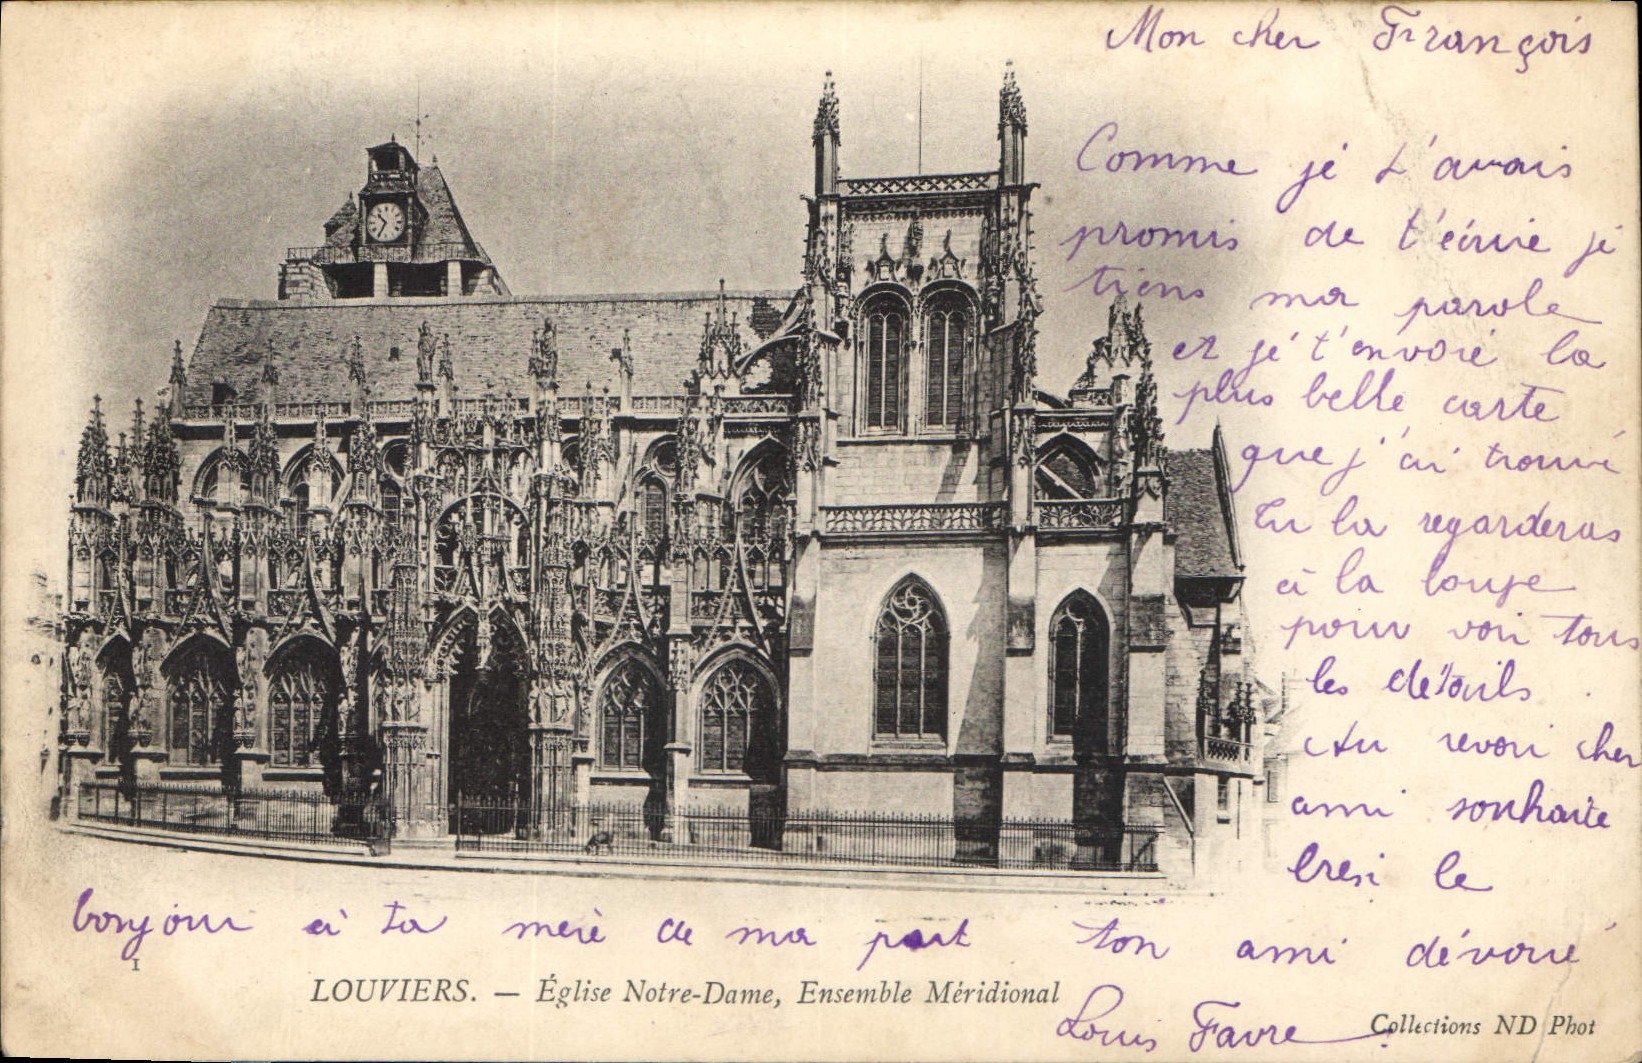 Mon cher François
Comme je t'avais
promis de t'écrire je
tiens ma parole
et je t'envoie la
plus belle carte
que j'ai trouvé
Tu la regarderas
à la loupe
pour voir tous
les détails.
Au revoir cher
ami souhaite
le
bonjour à ta mère de ma part ton ami dévoué
1
LOUVIERS. — Église Notre-Dame, Ensemble Méridional
Louis Favre
Collections ND Phot